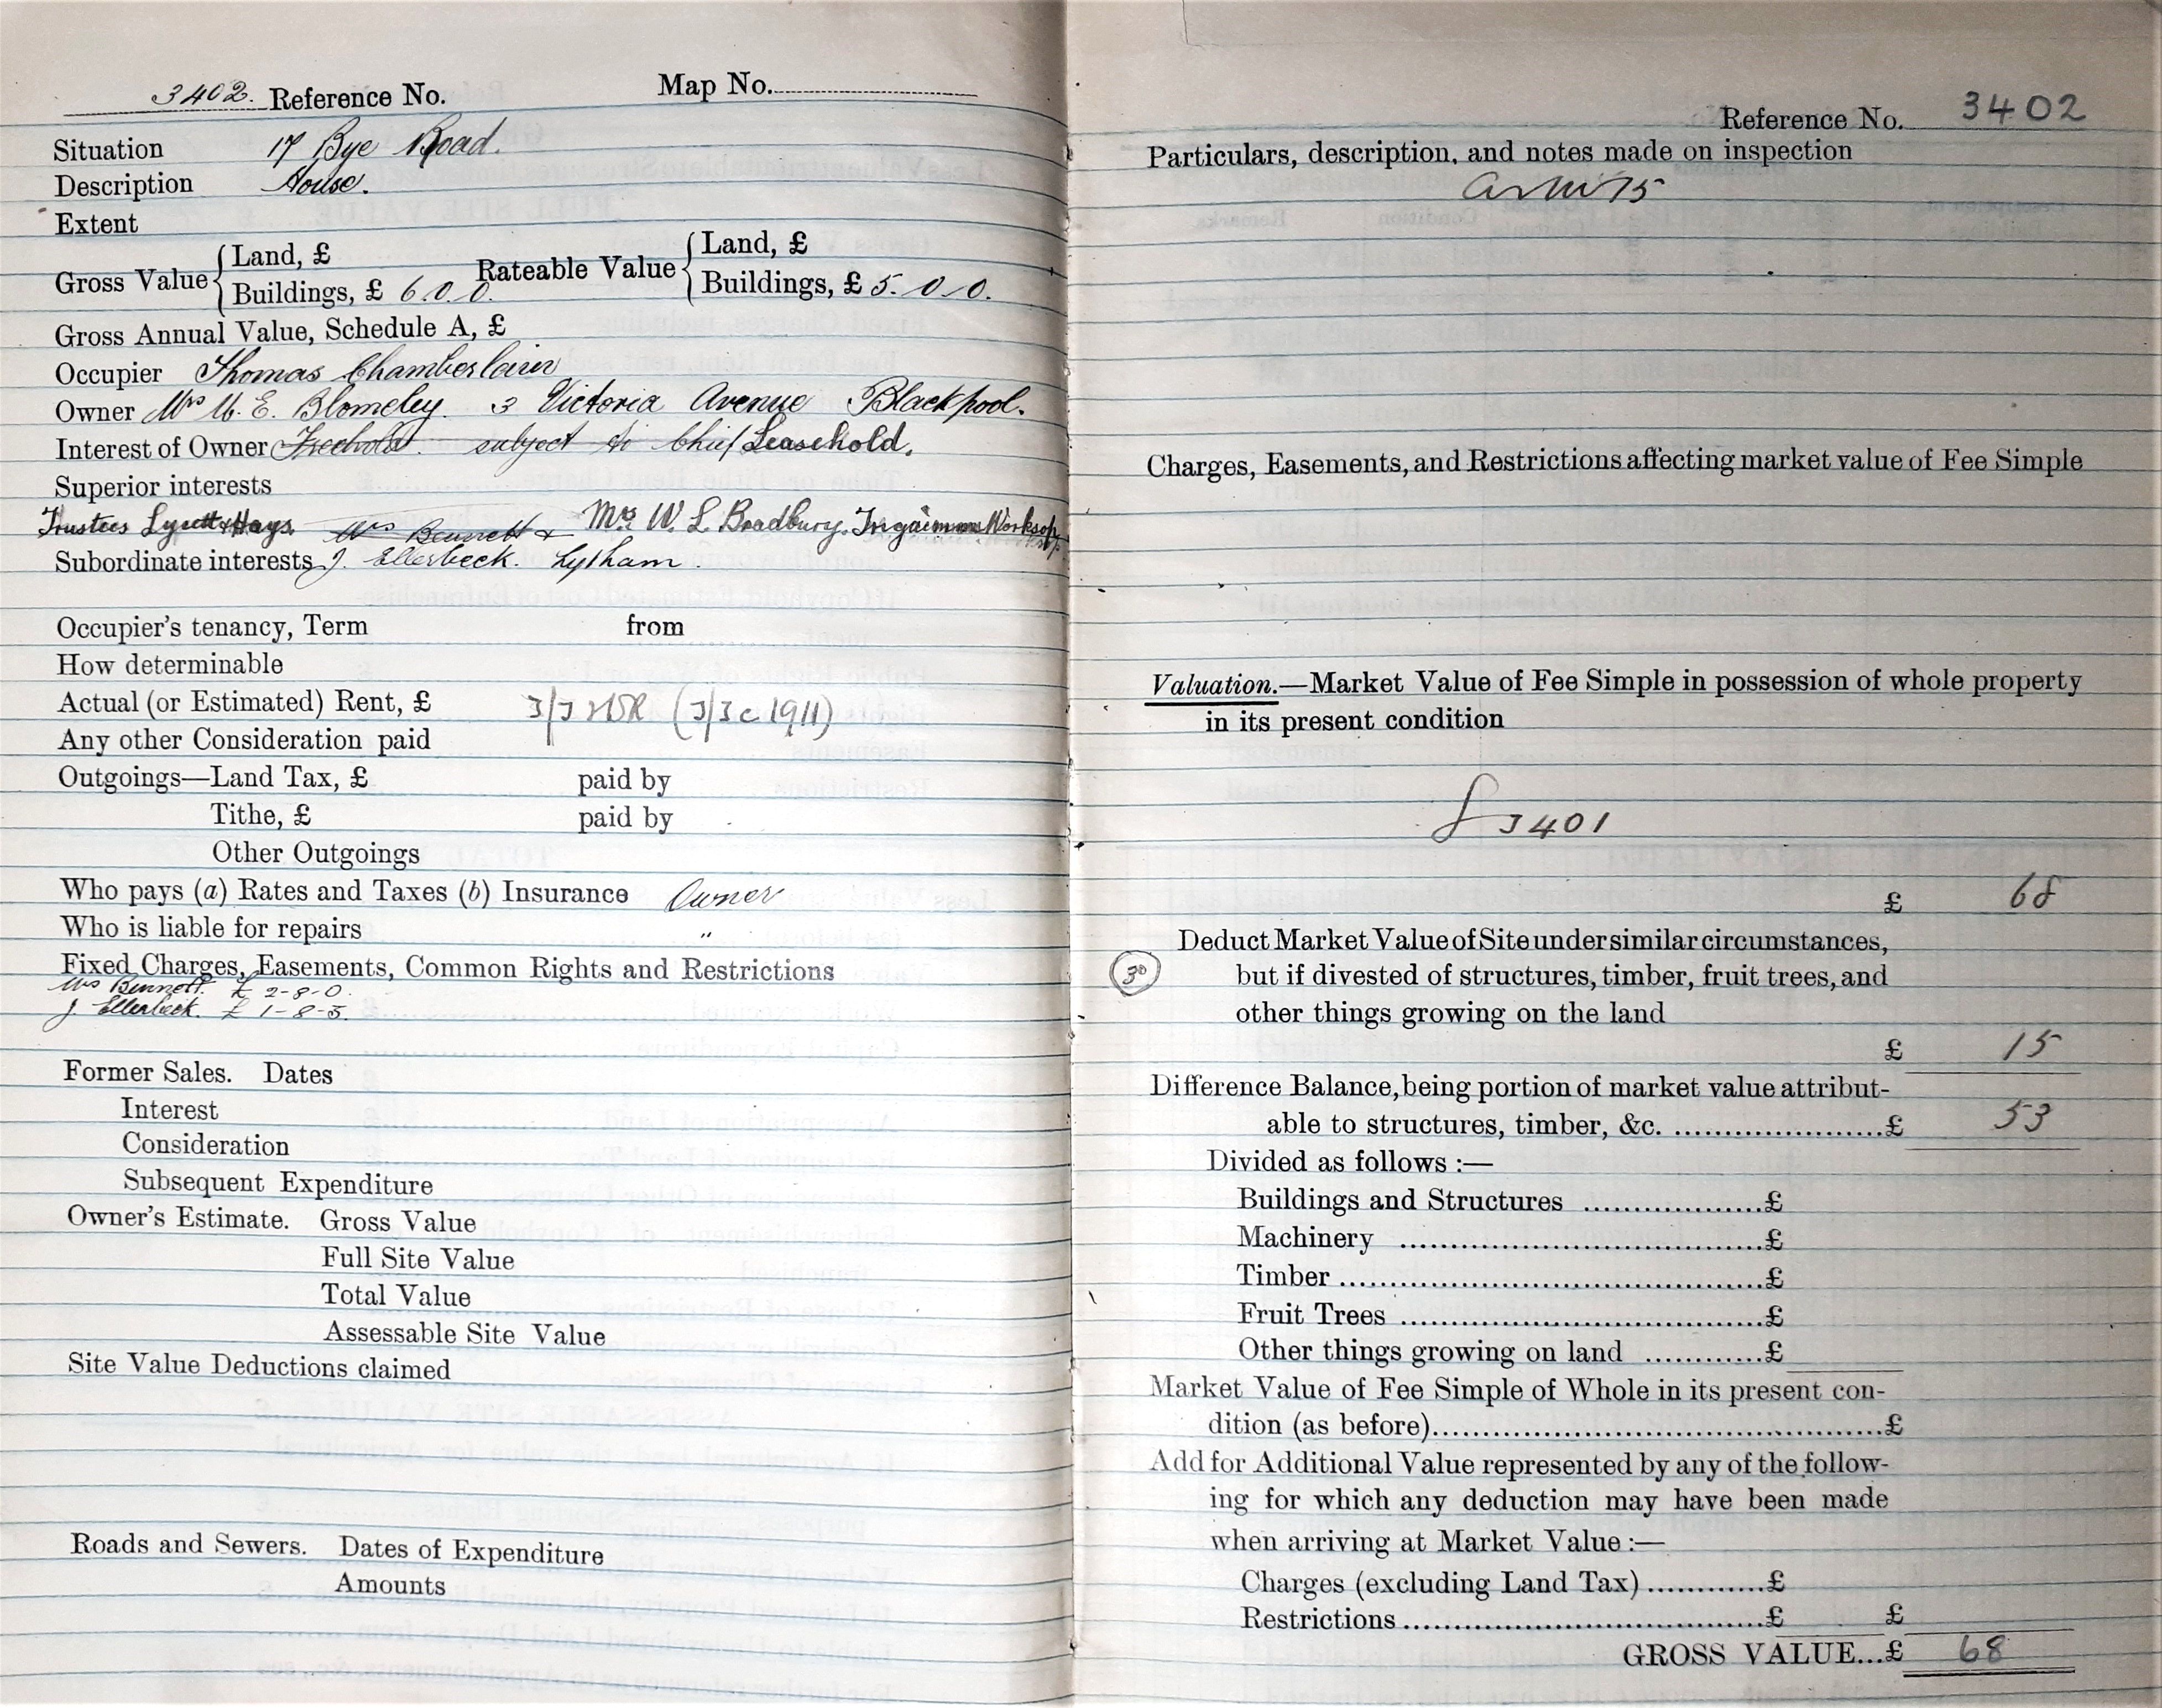 3402. Reference No. Map No.
Situation 17 Bye Road.
Description House.
Extent
Gross Value { Land, £
Buildings, £ 6.0.0.
Rateable Value { Land, £
Buildings, £ 5.0.0.
Gross Annual Value, Schedule A, £
Occupier Thomas Chamberlain
Owner Mrs E. Blomeley. 3 Victoria Avenue Blackpool.
Interest of Owner Freehold. subject to Chief Leasehold.
Superior interests
Trustees Lycett & Hays. Mrs Bennett & W. L. Bradbury. Worksop
Subordinate interests J. Ellerbeck. Lytham.
Occupier's tenancy, Term from
How determinable
Actual (or Estimated) Rent, £ 3/3 (3/3 c 1911)
Any other Consideration paid
Outgoings—Land Tax, £ paid by
Tithe, £ paid by
Other Outgoings
Who pays (a) Rates and Taxes (b) Insurance Owner
Who is liable for repairs "
Fixed Charges, Easements, Common Rights and Restrictions
Mrs Bennett. £ 2-8-0.
J. Ellerbeck. £ 1-8-5.
Former Sales. Dates
Interest
Consideration
Subsequent Expenditure
Owner's Estimate. Gross Value
Full Site Value
Total Value
Assessable Site Value
Site Value Deductions claimed
Roads and Sewers. Dates of Expenditure
Amounts
Reference No. 3402
Particulars, description, and notes made on inspection
Charges, Easements, and Restrictions affecting market value of Fee Simple
Valuation.—Market Value of Fee Simple in possession of whole property
in its present condition
3401
£ 68
Deduct Market Value of Site under similar circumstances,
30 but if divested of structures, timber, fruit trees, and
other things growing on the land
£ 15
Difference Balance, being portion of market value attribut-
able to structures, timber, &c. ....................£ 53
Divided as follows :—
Buildings and Structures ..................£
Machinery ..................£
Timber ..................£
Fruit Trees ..................£
Other things growing on land ............£
Market Value of Fee Simple of Whole in its present con-
dition (as before)..................£
Add for Additional Value represented by any of the follow-
ing for which any deduction may have been made
when arriving at Market Value :—
Charges (excluding Land Tax)............£
Restrictions..................£ £
GROSS VALUE...£ 68